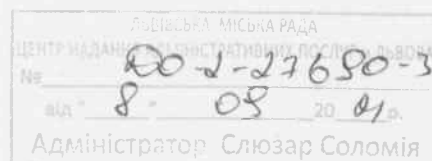 ЛЬВІВСЬКА МІСЬКА РАДА
ЦЕНТР НАДАННЯ АДМІНІСТРАТИВНИХ ПОСЛУГ М. ЛЬВОВА
№ 2-27690-3
від " 8 " 09 20 21 р.
Адміністратор Слюзар Соломія